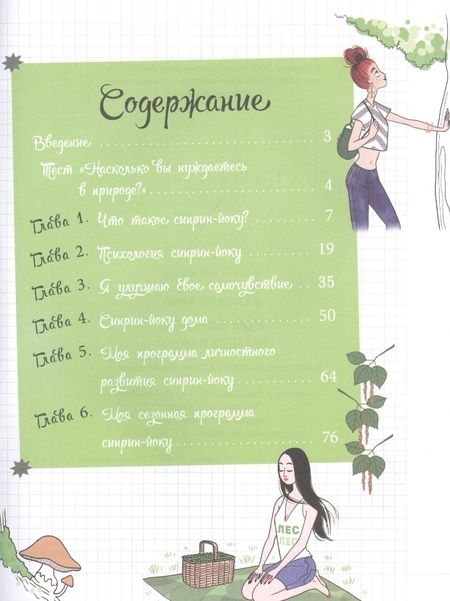 Содержание
Введение 3
Тест «Насколько вы нуждаетесь
в природе?» 4
Глава 1. Что такое синрин-йоку? 7
Глава 2. Психология синрин-йоку 19
Глава 3. Я улучшаю своё самочувствие 35
Глава 4. Синрин-йоку дома 50
Глава 5. Моя программа личностного
развития синрин-йоку 64
Глава 6. Моя сезонная программа
синрин-йоку 76
ЛЕС
ЛЕС